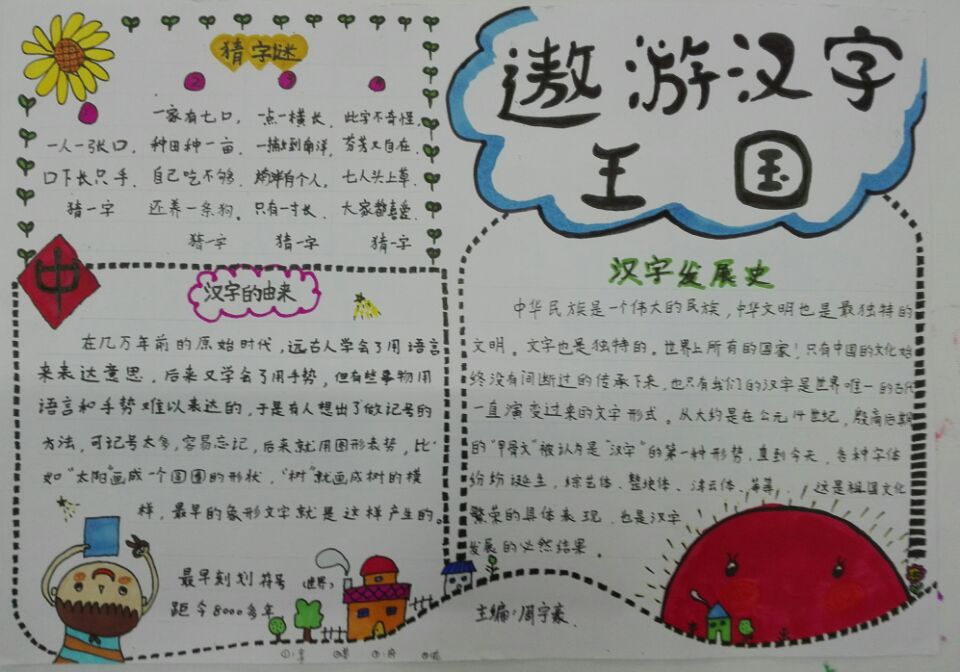 遨游汉字
王国
猜字谜
①
一人一张口,
口下长只手.
猜一字
②
一家有七口,
种田种一亩,
自己吃不够,
还养一条狗。
猜一字
③
一点一横长,
一撇到南洋,
有个人,
只有一寸长.
猜一字
此字不奇怪,
芬芳又自在,
七人头上草,
大家都喜爱.
猜一字
中
汉字的由来
在几万年前的原始时代,远古人学会了用语言
来表达意思,后来又学会了用手势,但有些事物用
语言和手势难以表达的,于是有人想出了做记号的
方法,可记号太多,容易忘记,后来就用图形表势,比
如“太阳”画成一个圆圈的形状,“树”就画成树的模
样,最早的象形文字就是这样产生的。
最早刻划符号(世界)
距今8000多年
汉字发展史
中华民族是一个伟大的民族,中华文明也是最独特的
文明。文字也是独特的。世界上所有的国家!只有中国的文化始
终没有间断过的传承下来,也只有我们的汉字是世界唯一的古代
一直演变过来的文字形式。从大约是在公元14世纪,殷商后期
的“甲骨文”被认为是“汉字”的第一种形势.直到今天,各种字体
纷纷诞生,综艺体、整块体、浮云体、等等、 这是祖国文化
繁荣的具体表现,也是汉字
发展的必然结果。
主编:周宇豪